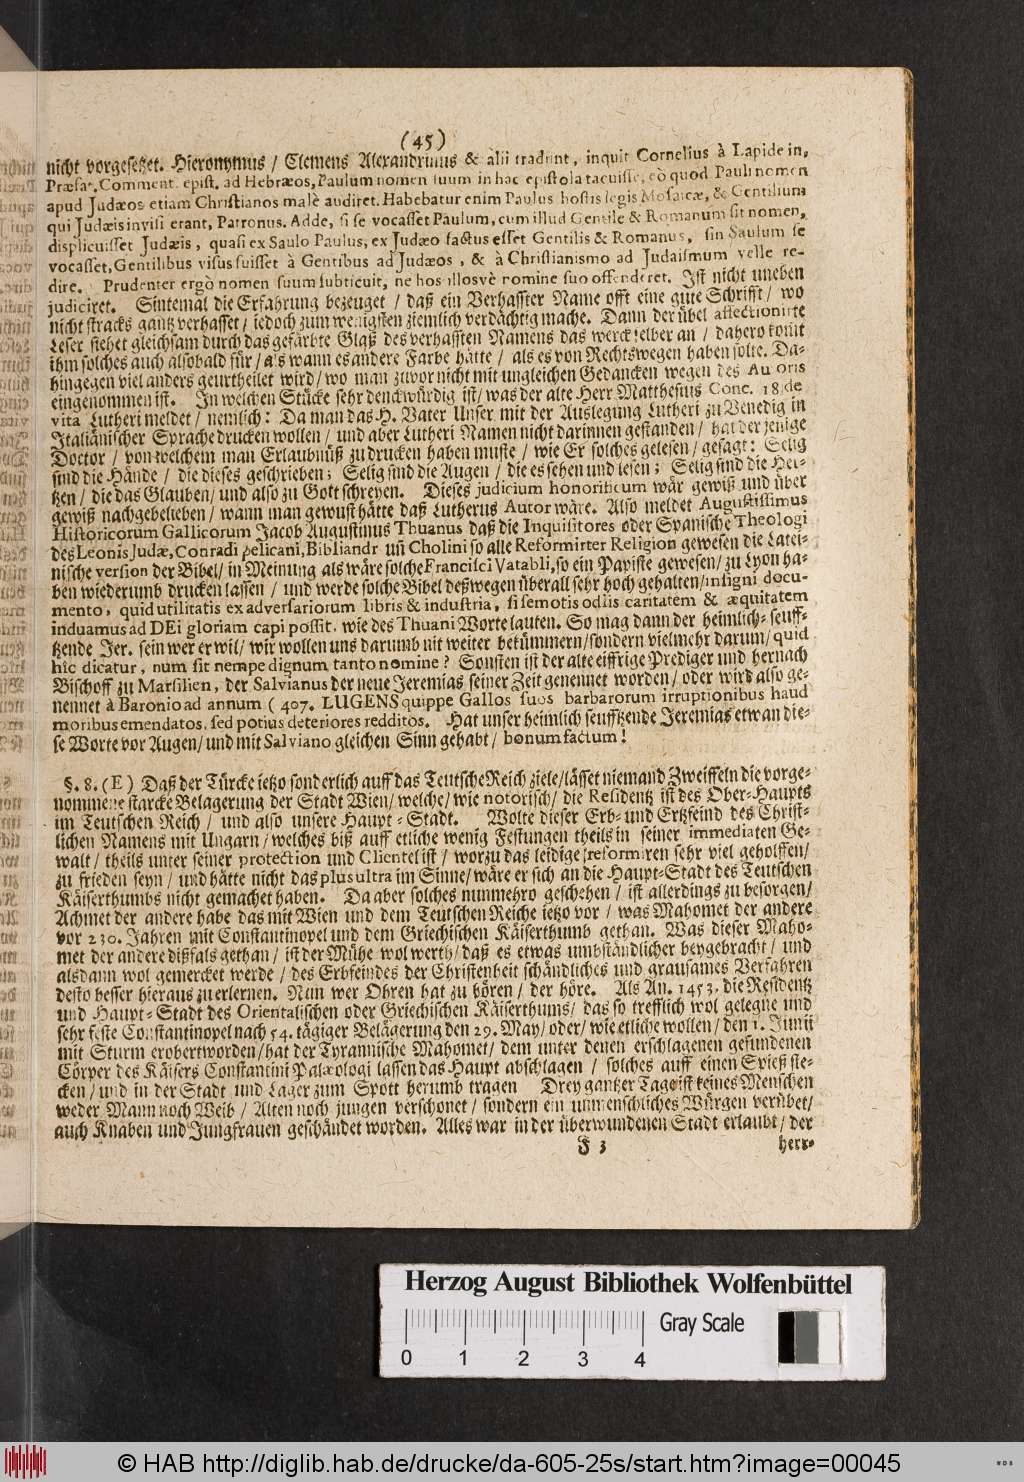 (45)
nicht vorgesetzet. Hieronymus / Clemens Alexandrinus & alii tradunt, inquit Cornelius à Lapide in,
Præfat. Comment. epist. ad Hebræos, Paulum nomen suum in hac epistola tacuisse, eò quod Pauli nomen
apud Judæos etiam Christianos malè audiret. Habebatur enim Paulus hostis legis Mosaicæ, & Gentilium
qui Judæis invisi erant, Patronus. Adde, si se vocasset Paulum, cum illud Gentile & Romanum sit nomen,
displicuisset Judæis, quasi ex Saulo Paulus, ex Judæo factus esset Gentilis & Romanus, sin Saulum se
vocasset, Gentilibus visus fuisset à Gentibus ad Judæos, & à Christianismo ad Judaismum velle re-
dire. Prudenter ergò nomen suum subticuit, ne hos illosvè nomine suo offenderet. Ist nicht uneben
judiciret. Sintemal die Erfahrung bezeuget / daß ein Verhasster Name offt eine gute Schrifft / wo
nicht stracks gantz verhasset / iedoch zum wenigsten ziemlich verdächtig mache. Dann der übel affectionirte
Leser siehet gleichsam durch das gefärbte Glaß des verhassten Namens das werck selber an / dahero komt
ihm solches auch alsobald für / als wann es andere Farbe hätte / als es von Rechtswegen haben solte. Da-
hingegen viel anders geurtheilet wird / wo man zuvor nicht mit ungleichen Gedancken wegen des Autoris
eingenommen ist. In welchen Stücke sehr denckwürdig ist / was der alte Herr Matthesius Conc. 18. de
vita Lutheri meldet / nemlich: Da man das H. Vater Unser mit der Auslegung Lutheri zu Venedig in
Italiänischer Sprache drucken wollen / und aber Lutheri Namen nicht darinnen gestanden / hat der jenige
Doctor / von welchem man Erlaubnüß zu drucken haben muste / wie Er solches gelesen / gesagt: Selig
sind die Hände / die dieses geschrieben; Selig sind die Augen / die es sehen und lesen; Selig sind die Her-
tzen / die das Glauben / und also zu Gott schreyen. Dieses judicium honorificum wär gewiß und über
gewiß nachgebelieben / wann man gewust hätte daß Lutherus Autor wäre. Also meldet Augustissimus
Historicorum Gallicorum Jacob Augustinus Thuanus daß die Inquisitores oder Spanische Theologi
des Leonis Judæ, Conradi Pelicani, Bibliandr uñ Cholini so alle Reformirter Religion gewesen die Latei-
nische version der Bibel / in Meinung als wäre solche Francisci Vatabli, so ein Papiste gewesen / zu Lyon ha-
ben wiederumb drucken lassen / und werde solche Bibel deßwegen überall sehr hoch gehalten / insigni docu-
mento, quid utilitatis ex adversariorum libris & industria, si semotis odiis caritatem & æquitatem
induamus ad DEi gloriam capi possit, wie des Thuani Worte lauten. So mag dann der heimlich-seuff-
tzende Jer. sein wer er wil / wir wollen uns darumb nit weiter bekümmern / sondern vielmehr darum / quid
hic dicatur, num sit nempe dignum tanto nomine? Sonsten ist der alte eiffrige Prediger und hernach
Bischoff zu Marsilien, der Salvianus der neue Jeremias seiner Zeit genennet worden / oder wird also ge-
nennet à Baronio ad annum ( 407. LUGENS quippe Gallos suos barbarorum irruptionibus haud
moribus emendatos, sed potius deteriores redditos. Hat unser heimlich seufftzende Jeremias etwan die-
se Worte vor Augen / und mit Salviano gleichen Sinn gehabt / bonum factum!
§. 8. (E) Daß der Türcke ietzo sonderlich auff das Teutsche Reich ziele / lässet niemand Zweiffeln die vorge-
nommene starcke Belagerung der Stadt Wien / welche / wie notorisch / die Residentz ist des Ober-Haupts
im Teutschen Reich / und also unsere Haupt-Stadt. Wolte dieser Erb- und Ertzfeind des Christ-
lichen Namens mit Ungarn / welches biß auff etliche wenig Festungen theils in seiner immediaten Ge-
walt / theils unter seiner protection und Clientel ist / worzu das leidige reformiren sehr viel geholffen /
zu frieden seyn / und hätte nicht das plus ultra im Sinne / wäre er sich an die Haupt-Stadt des Teutschen
Käiserthumbs nicht gemachet haben. Da aber solches nunmehro geschehen / ist allerdings zu besorgen /
Achmet der andere habe das mit Wien und dem Teutschen Reiche ietzo vor / was Mahomet der andere
vor 230. Jahren mit Constantinopel und dem Griechischen Käiserthumb gethan. Was dieser Maho-
met der andere dißfals gethan / ist der Mühe wol werth / daß es etwas umbständlicher beygebracht / und
alsdann wol gemercket werde / des Erbfeindes der Christenheit schändliches und grausames Verfahren
desto besser hieraus zu erlernen. Nun wer Ohren hat zu hören / der höre. Als An. 1453. die Residentz
und Haupt-Stadt des Orientalischen oder Griechischen Käiserthums / das so trefflich wol gelegne und
sehr feste Constantinopel nach 54. tägiger Belägerung den 29. May / oder / wie etliche wollen / den 1. Junii
mit Sturm erobert worden / hat der Tyrannische Mahomet / dem unter denen erschlagenen gefundenen
Cörper des Käisers Constantini Palæologi lassen das Haupt abschlagen / solches auff einen Spieß ste-
cken / und in der Stadt und Lager zum Spott herumb tragen Drey gantzer Tage ist keines Menschen
weder Mann noch Weib / Alten noch jungen verschonet / sondern ein unmenschliches Würgen verübet /
auch Knaben und Jungfrauen geschändet worden. Alles war in der überwundenen Stadt erlaubt / der
F 3 herr-
Herzog August Bibliothek Wolfenbüttel
Gray Scale
0 1 2 3 4
© HAB http://diglib.hab.de/drucke/da-605-25s/start.htm?image=00045